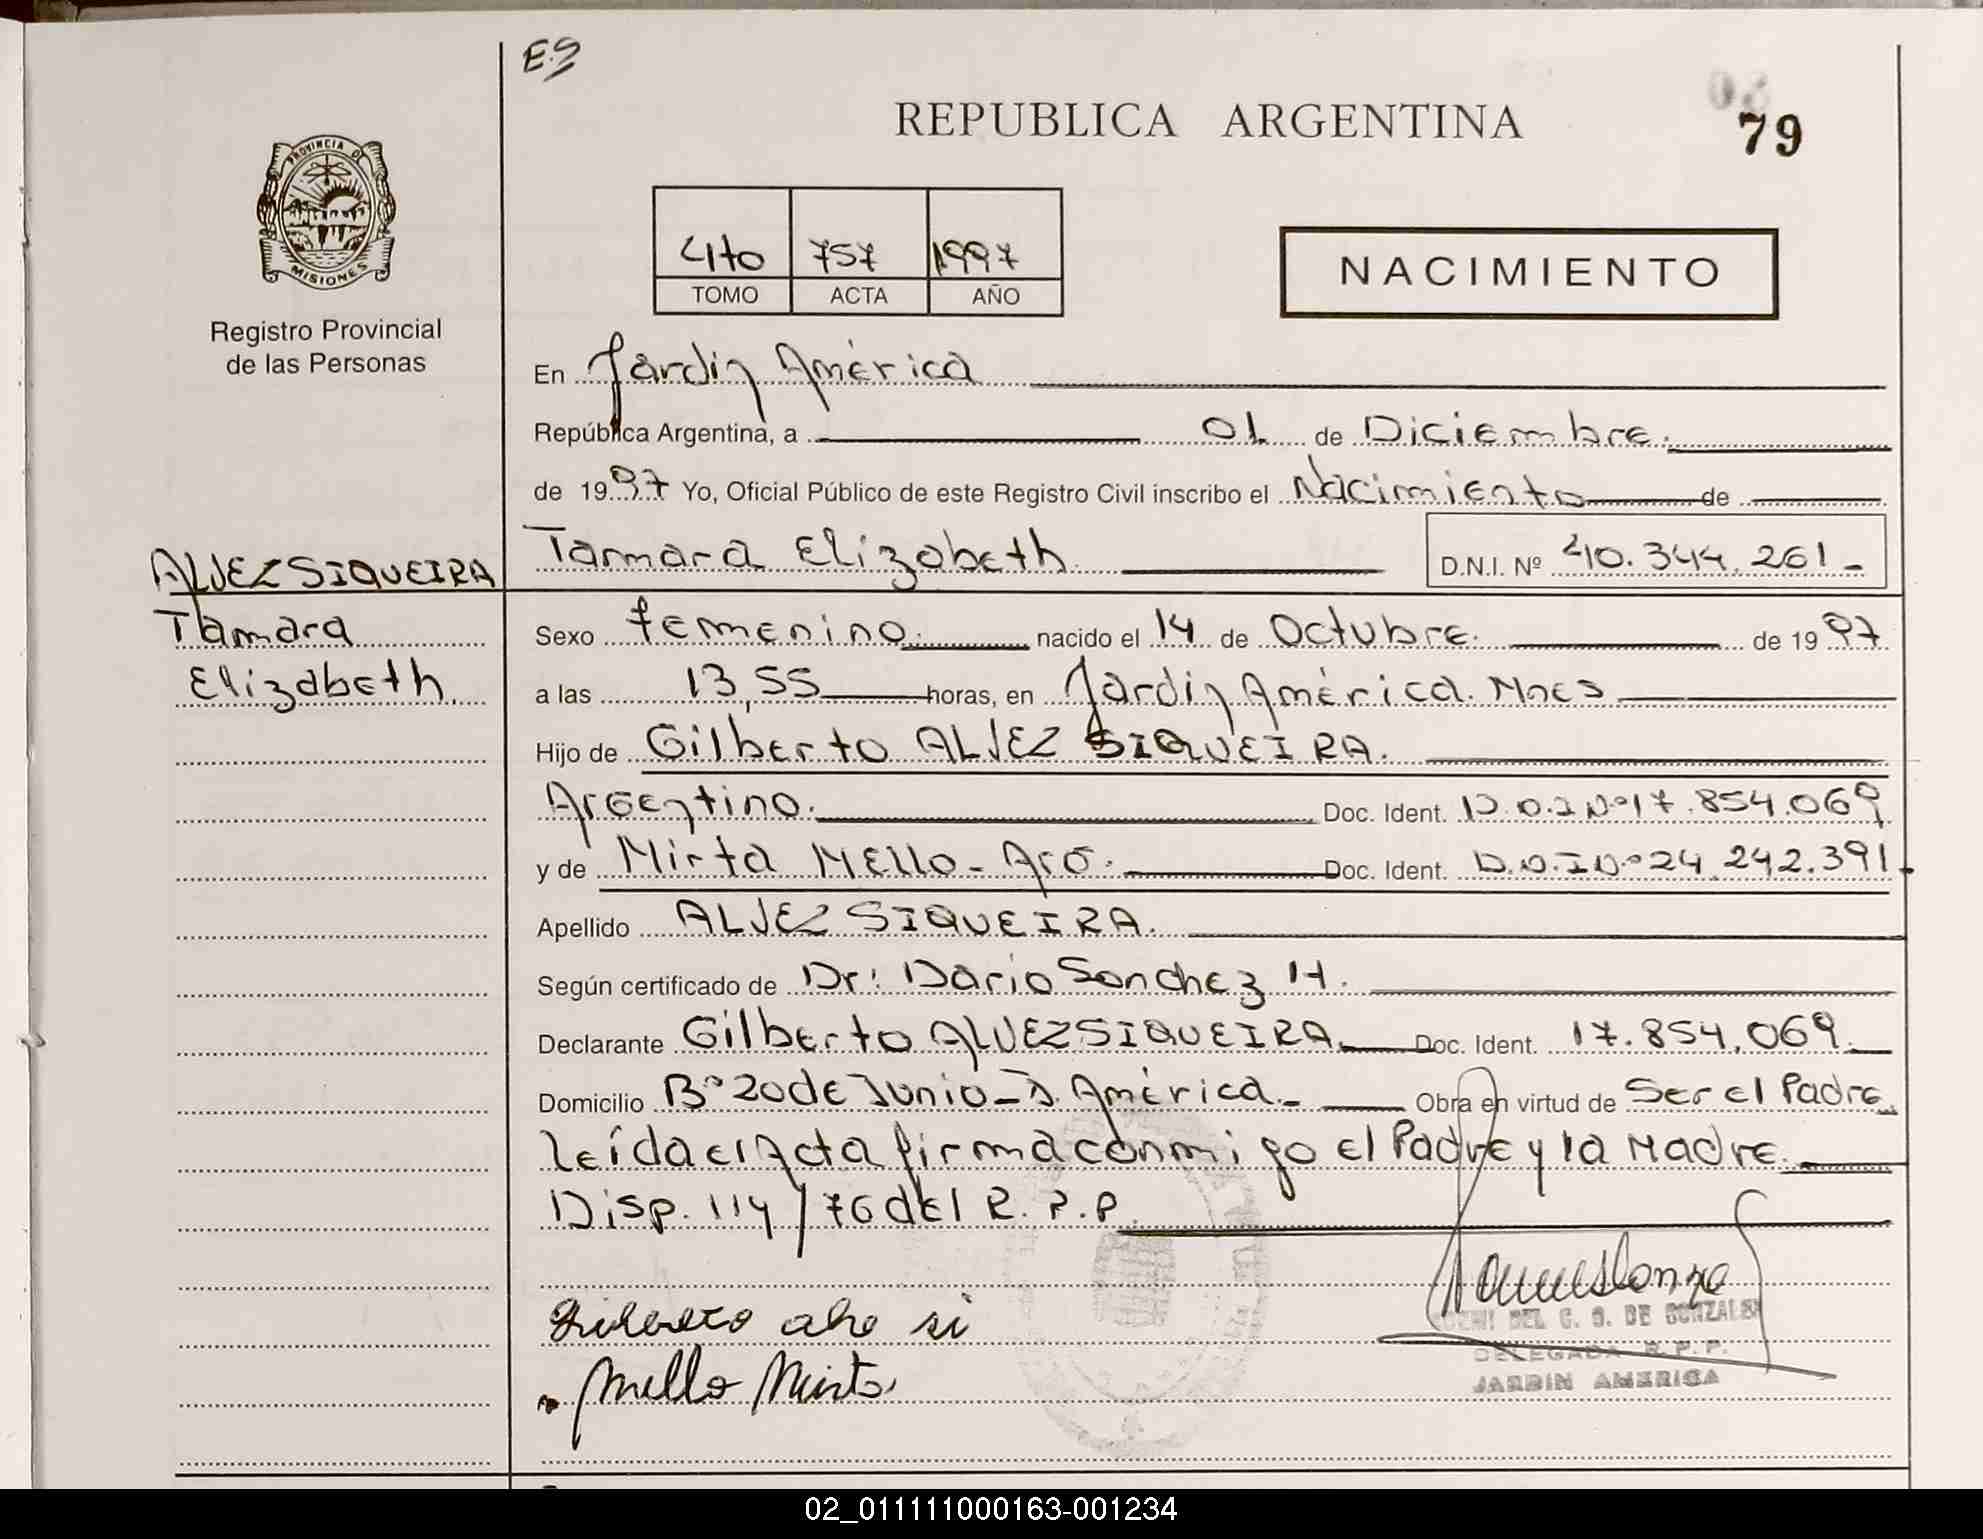 E.S
REPUBLICA ARGENTINA
79
PROVINCIA DE
MISIONES
Registro Provincial
de las Personas
4to 757 1997
TOMO ACTA AÑO
NACIMIENTO
En Jardín América
República Argentina, a 01 de Diciembre.
de 1997 Yo, Oficial Público de este Registro Civil inscribo el Nacimiento de
Tamara Elizabeth D.N.I. Nº 40.344.261-
ALVEZ SIQUEIRA
Tamara
Elizabeth.
Sexo femenino. nacido el 14 de Octubre. de 1997
a las 13,55 horas, en Jardín América. Mnes
Hijo de Gilberto ALVEZ SIQUEIRA.
Argentino. Doc. Ident. D.N.I Nº 17.854.069
y de Mirta MELLO - Arg. Doc. Ident. D.N.I Nº 24.242.391
Apellido ALVEZ SIQUEIRA.
Según certificado de Dr: Dario Sanchez H.
Declarante Gilberto ALVEZ SIQUEIRA Doc. Ident. 17.854.069.
Domicilio Bº 20 de Junio - J. América.- Obra en virtud de Ser el Padre.
Leída el Acta firma conmigo el Padre y la Madre.
Disp. 114/76 del R.P.P
DEL C. G. DE GONZALEZ
DELEGADA R.P.P.
JARDIN AMERICA
Mello Mirta
02_011111000163-001234